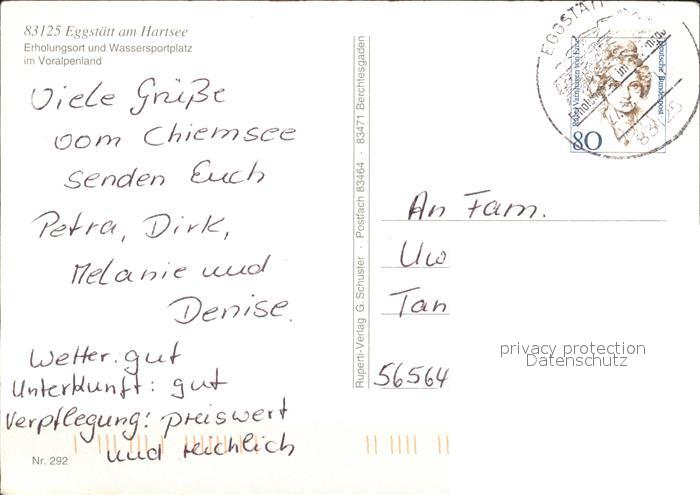 83125 Eggstätt am Hartsee
Erholungsort und Wassersportplatz
im Voralpenland
Viele Grüße
vom Chiemsee
senden Euch
Petra, Dirk,
Melanie und
Denise.
Wetter: gut
Unterkunft: gut
Verpflegung: preiswert
und reichlich
Nr. 292
Ruperti-Verlag G. Schuster · Postfach 83464 · 83471 Berchtesgaden
EGGSTÄTT
83125
Deutsche Bundespost
80
An Fam.
Uw
Tan
56564
privacy protection
Datenschutz